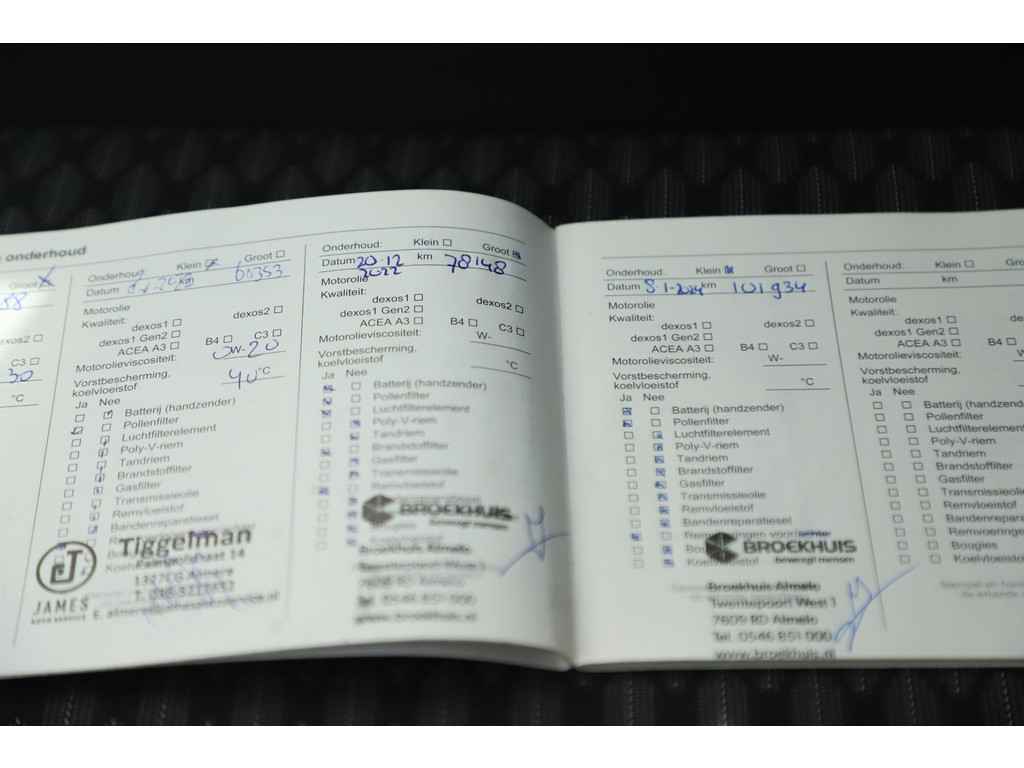 onderhoud
Groot
58
dexos2
C3
30
°C
Onderhoud: Klein Groot
Datum km 60353
Motorolie
Kwaliteit:
dexos1 dexos2
dexos1 Gen2
ACEA A3 B4 C3
Motorolieviscositeit: 0W-20
Vorstbescherming,
koelvloeistof 40 °C
Ja Nee
Batterij (handzender)
Pollenfilter
Luchtfilterelement
Poly-V-riem
Tandriem
Brandstoffilter
Gasfilter
Transmissieolie
Remvloeistof
Bandenreparatieset
JAMES
Tiggelman
Onderhoud: Klein Groot
Datum 20-12 km 78148
2022
Motorolie
Kwaliteit:
dexos1 dexos2
dexos1 Gen2
ACEA A3 B4 C3
Motorolieviscositeit: W-
Vorstbescherming,
koelvloeistof °C
Ja Nee
Batterij (handzender)
Pollenfilter
Luchtfilterelement
Poly-V-riem
Tandriem
Brandstoffilter
Gasfilter
Transmissieolie
Remvloeistof
BROEKHUIS
beweegt mensen
Broekhuis Almelo
Twentepoort West 1
7609 RD Almelo
Tel. 0546 851 000
www.broekhuis.nl
Onderhoud: Klein Groot
Datum 8-1-2024 km 101934
Motorolie
Kwaliteit:
dexos1 dexos2
dexos1 Gen2
ACEA A3 B4 C3
Motorolieviscositeit: W-
Vorstbescherming,
koelvloeistof °C
Ja Nee
Batterij (handzender)
Pollenfilter
Luchtfilterelement
Poly-V-riem
Tandriem
Brandstoffilter
Gasfilter
Transmissieolie
Remvloeistof
Bandenreparatieset
BROEKHUIS
beweegt mensen
Broekhuis Almelo
Twentepoort West 1
7609 RD Almelo
Tel. 0546 851 000
www.broekhuis.nl
Onderhoud: Klein
Datum km
Motorolie
Kwaliteit:
dexos1
dexos1 Gen2
ACEA A3
Motorolieviscositeit:
Vorstbescherming,
koelvloeistof
Ja Nee
Batterij (handzender
Pollenfilter
Luchtfilterelement
Poly-V-riem
Tandriem
Brandstoffilter
Gasfilter
Transmissieolie
Remvloeistof
Bandenreparatie
Remvoeringen
Bougies
Koelvloeistof